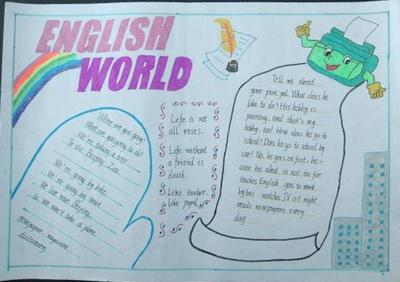 ENGLISH
WORLD
Where are you going?
What are you going to do?
We're taking a trip
to the Beijing Zoo.
We're going by bike.
We're going by
We live near Beijing.
So we won't take a plane
newspaper magazine
dictionary
Life is not
all roses.
Life without
a friend is
death.
Like teacher,
like pupil.
Tell me about
your pen pal. What does he
like to do? His hobby is
painting, and that's my
hobby, too! How does he go to
school? Does he go to school by
car? No, he goes on foot, bec-
ause his school is not too far
teaches English goes to work
by bus watches TV at night
reads newspapers every
day